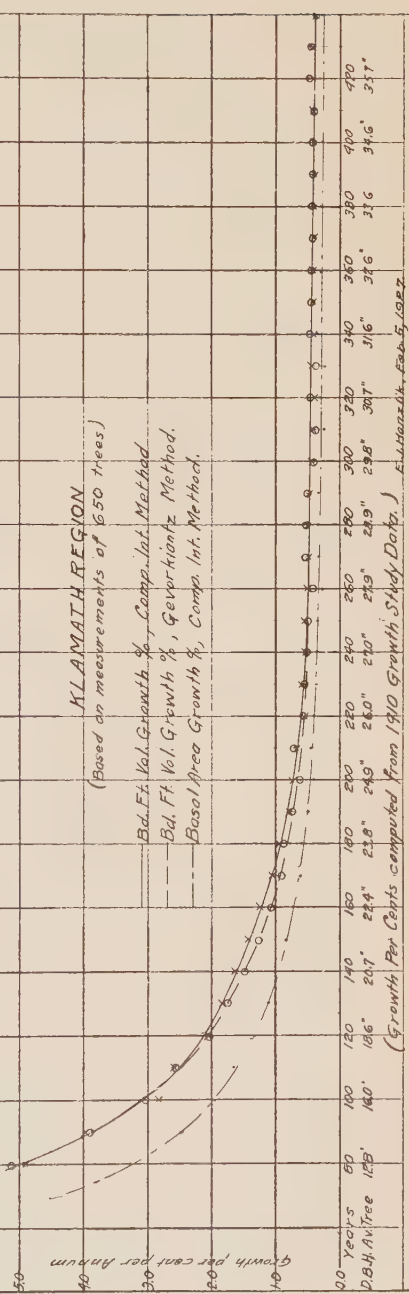 KLAMATH REGION
(Based on measurements of 650 trees)
Bd. Ft. Vol. Growth %, Comp. Int. Method
Bd. Ft. Vol. Growth %, Gevorkiantz Method.
Basal Area Growth %, Comp. Int. Method.
Growth per cent per Annum
5.0
4.0
3.0
2.0
1.0
0.0
Years 80 100 120 140 160 180 200 220 240 260 280 300 320 340 360 380 400 420
D.B.H. Av. Tree 12.8" 16.0" 18.6" 20.7" 22.4" 23.8" 24.9" 26.0" 27.0" 27.9" 28.9" 29.8" 30.7" 31.6" 32.6" 33.6 34.6" 35.7"
(Growth Per Cents computed from 1910 Growth Study Data.) Feb 5, 1927